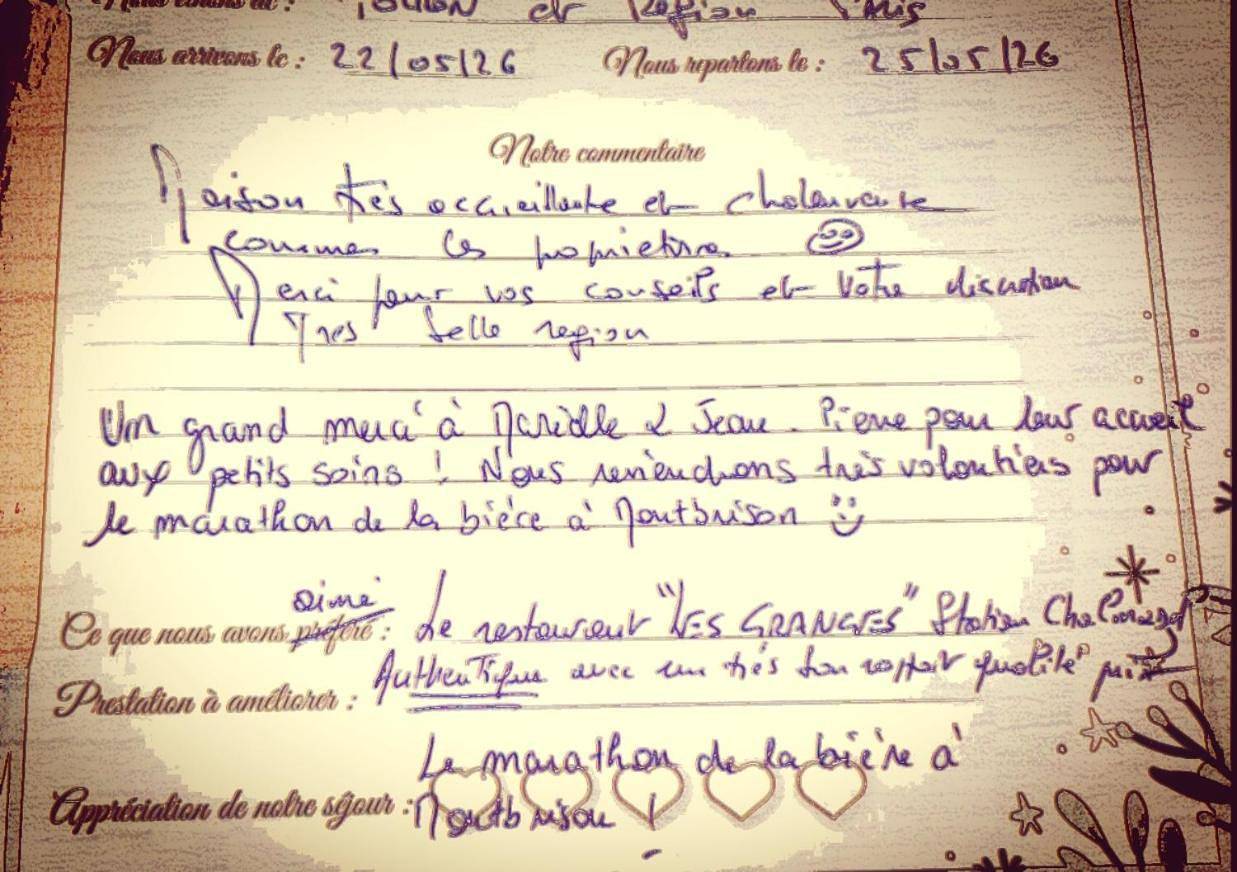 Nous venons de : Toulon et Region Paris
Nous arrivons le : 22/05/26 Nous repartons le : 25/05/26
Notre commentaire
Maison très accueillante et chaleureuse
commes les propietires ☺
Merci pour vos conseils et votre discretion
Tres belle region
Un grand merci à Marielle & Jean-Pierre pour leur accueil
aux petits soins ! Nous reviendrons très volontiers pour
le marathon de la bière à Montbrison :)
aimé
Ce que nous avons préféré : Le restaurant "LES GRANGES" Station Chalmazel
Authentique avec un très bon rapport qualité prix
Prestation à améliorer :
Le marathon de la bière à
Appréciation de notre séjour : Montbrison !